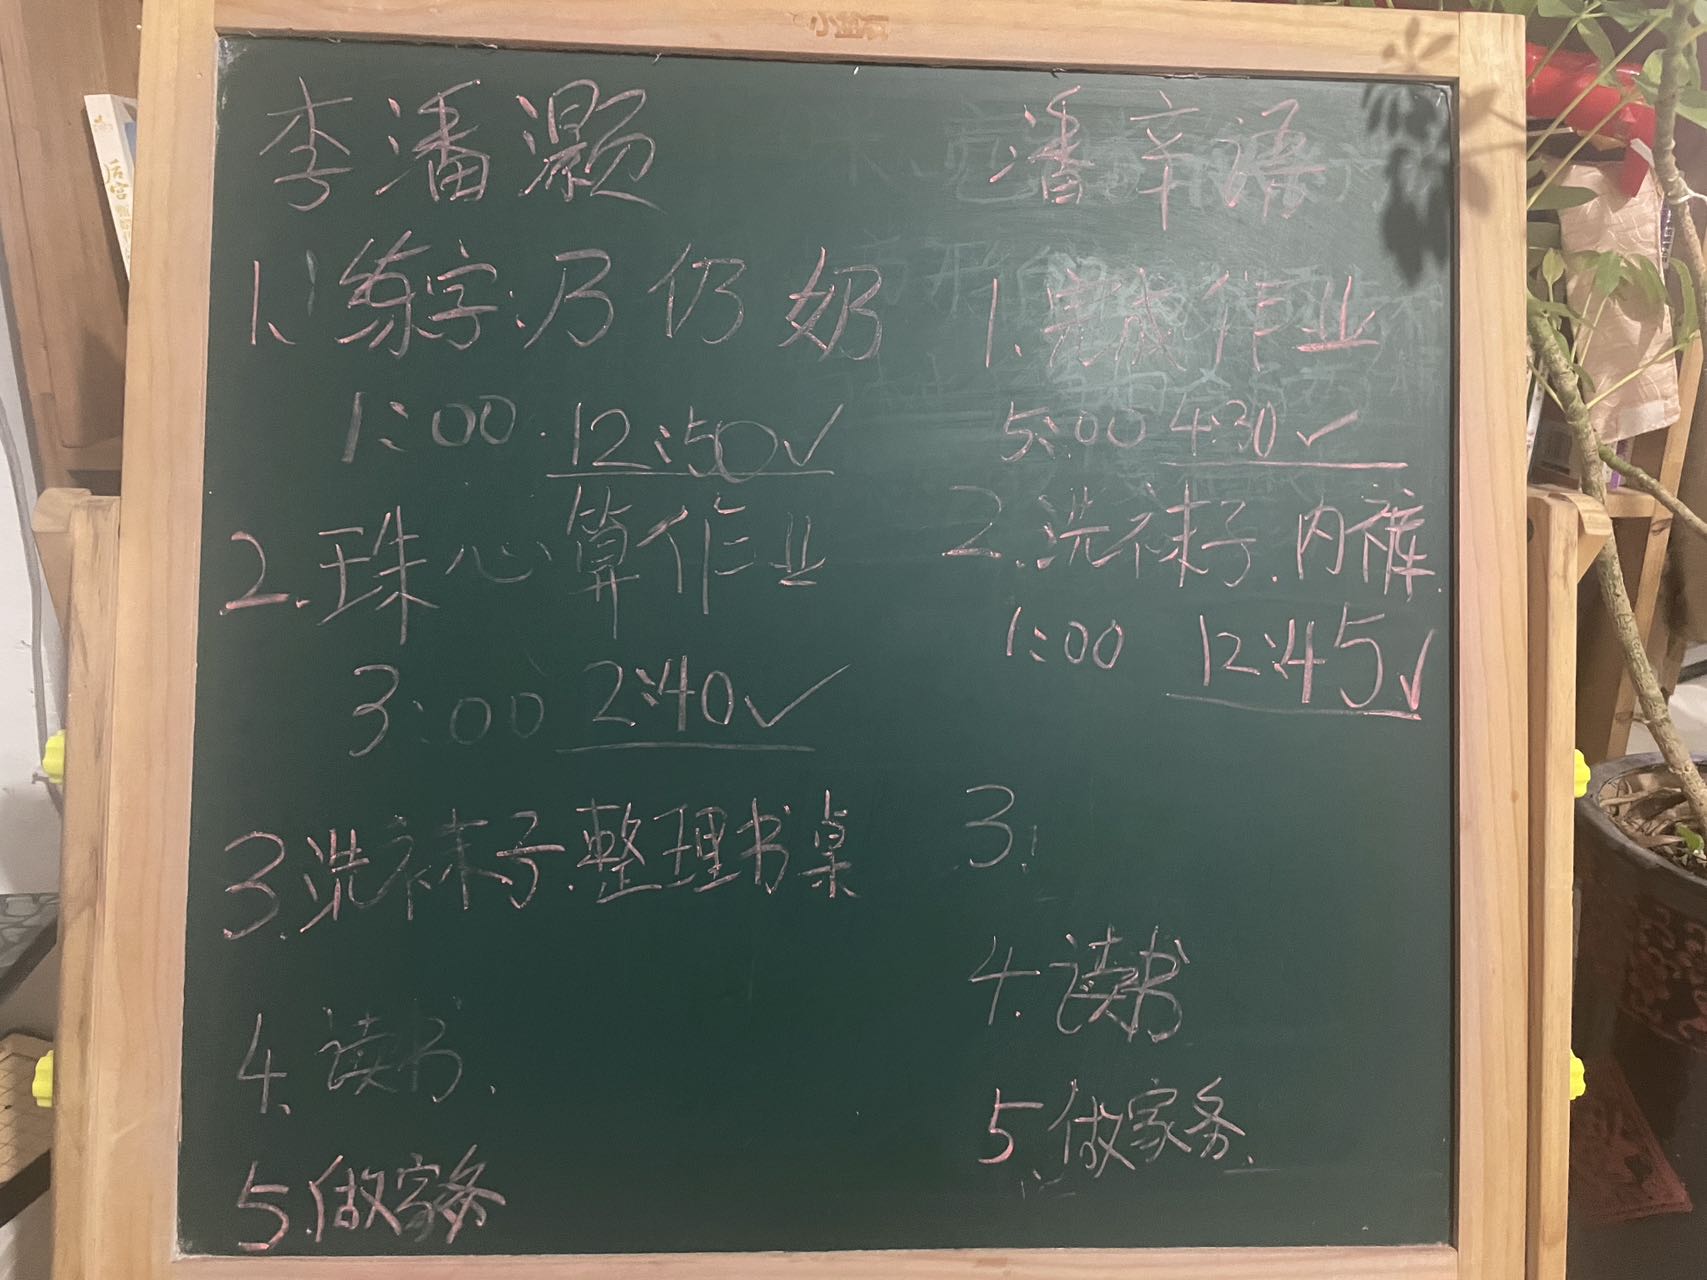 李潘灏
1、练字:乃仍奶
1:00 12:50✓
2.珠心算作业
3:00 2:40✓
3.洗袜子.整理书桌
4、读书.
5.做家务
潘辛语
1.完成作业
5:00 4:30✓
2.洗袜子.内裤.
1:00 12:45✓
3.
4.读书
5.做家务.